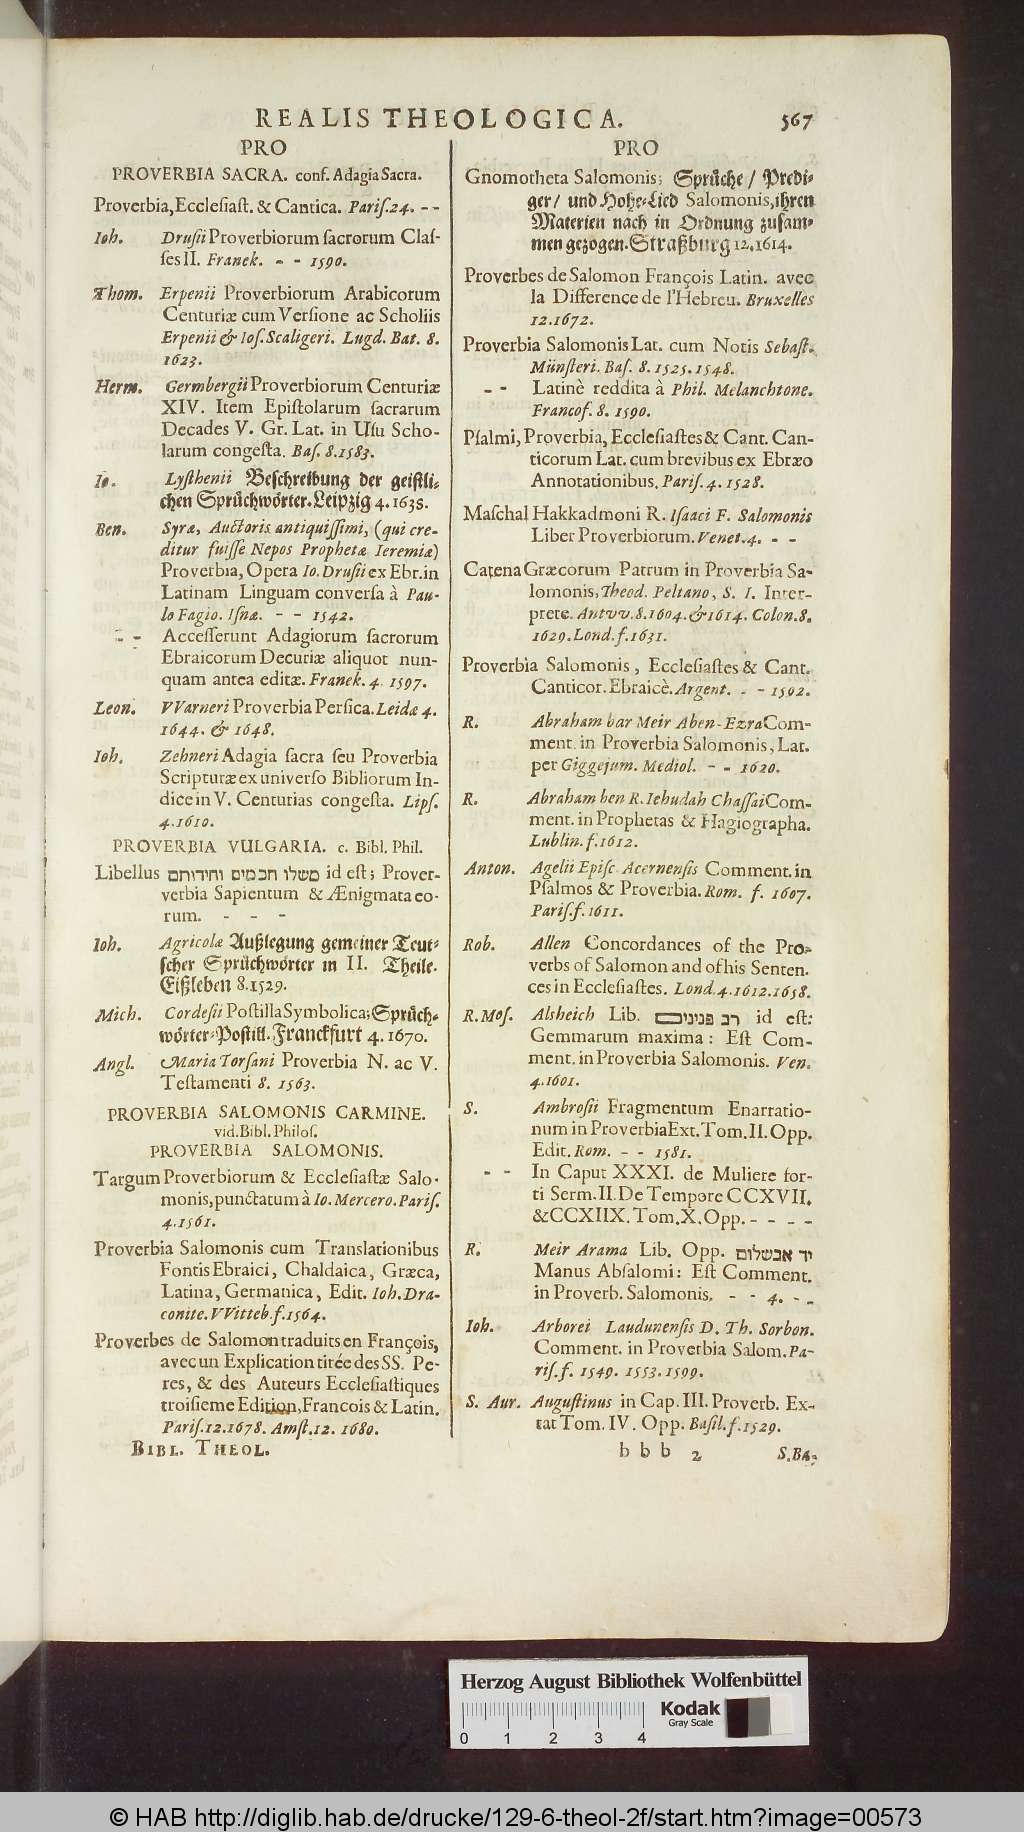 REALIS THEOLOGICA. 567
PRO
PROVERBIA SACRA. conf. Adagia Sacra.
Proverbia, Ecclesiast. & Cantica. Paris. 24. - -
Ioh. Drusii Proverbiorum sacrorum Clas-
ses II. Franek. - - 1590.
Thom. Erpenii Proverbiorum Arabicorum
Centuriæ cum Versione ac Scholiis
Erpenii & Ios. Scaligeri. Lugd. Bat. 8.
1623.
Herm. Germbergii Proverbiorum Centuriæ
XIV. Item Epistolarum sacrarum
Decades V. Gr. Lat. in Usu Scho-
larum congesta. Bas. 8. 1583.
Io. Lysthenii Beschreibung der geistli-
chen Sprüchwörter. Leipzig 4. 1638.
Ben. Syræ, Auctoris antiquissimi, (qui cre-
ditur fuisse Nepos Prophetæ Ieremiæ)
Proverbia, Opera Io. Drusii ex Ebr. in
Latinam Linguam conversa à Pau-
lo Fagio. Isnæ. - - 1542.
- - Accesserunt Adagiorum sacrorum
Ebraicorum Decuriæ aliquot nun-
quam antea editæ. Franek. 4. 1597.
Leon. VVarneri Proverbia Persica. Leidæ 4.
1644. & 1648.
Ioh. Zehneri Adagia sacra seu Proverbia
Scripturæ ex universo Bibliorum In-
dice in V. Centurias congesta. Lips.
4. 1610.
PROVERBIA VULGARIA. c. Bibl. Phil.
Libellus משלו חכמים וחידותם id est; Prover-
verbia Sapientum & Ænigmata eo-
rum. - - -
Ioh. Agricolæ Außlegung gemeiner Teut-
scher Sprüchwörter in II. Theile.
Eißleben 8. 1529.
Mich. Cordesii Postilla Symbolica; Sprüch-
wörter-Postill. Franckfurt 4. 1670.
Angl. Maria Torsani Proverbia N. ac V.
Testamenti 8. 1563.
PROVERBIA SALOMONIS CARMINE.
vid. Bibl. Philos.
PROVERBIA SALOMONIS.
Targum Proverbiorum & Ecclesiastæ Salo-
monis, punctatum à Io. Mercero. Paris.
4. 1561.
Proverbia Salomonis cum Translationibus
Fontis Ebraici, Chaldaica, Græca,
Latina, Germanica, Edit. Ioh. Dra-
conite. VVitteb. f. 1564.
Proverbes de Salomon traduits en François,
avec un Explication tirée des SS. Pe-
res, & des Auteurs Ecclesiastiques
troisieme Edition, Francois & Latin.
Paris. 12. 1678. Amst. 12. 1680.
BIBL. THEOL.
PRO
Gnomotheta Salomonis; Sprüche / Predi-
ger / und Hohe-Lied Salomonis, ihren
Materien nach in Ordnung zusam-
men gezogen. Straßburg 12. 1614.
Proverbes de Salomon François Latin. avec
la Difference de l'Hebreu. Bruxelles
12. 1672.
Proverbia Salomonis Lat. cum Notis Sebast.
Münsteri. Bas. 8. 1525. 1548.
- - Latinè reddita à Phil. Melanchtone.
Francof. 8. 1590.
Psalmi, Proverbia, Ecclesiastes & Cant. Can-
ticorum Lat. cum brevibus ex Ebræo
Annotationibus. Paris. 4. 1528.
Maschal Hakkadmoni R. Isaaci F. Salomonis
Liber Proverbiorum. Venet. 4. - -
Catena Græcorum Patrum in Proverbia Sa-
lomonis, Theod. Peltano, S. I. Inter-
prete. Antvv. 8. 1604. & 1614. Colon. 8.
1629. Lond. f. 1631.
Proverbia Salomonis, Ecclesiastes & Cant.
Canticor. Ebraicè. Argent. - - 1592.
R. Abraham bar Meir Aben-Ezra Com-
ment. in Proverbia Salomonis, Lat.
per Giggejum. Mediol. - - 1620.
R. Abraham ben R. Iehudah Chassai Com-
ment. in Prophetas & Hagiographa.
Lublin. f. 1612.
Anton. Agelii Episc. Acernensis Comment. in
Psalmos & Proverbia. Rom. f. 1607.
Paris. f. 1611.
Rob. Allen Concordances of the Pro-
verbs of Salomon and of his Senten.
ces in Ecclesiastes. Lond. 4. 1612. 1658.
R. Mos. Alsheich Lib. רב פנינים id est:
Gemmarum maxima: Est Com-
ment. in Proverbia Salomonis. Ven.
4. 1601.
S. Ambrosii Fragmentum Enarratio-
num in Proverbia Ext. Tom. II. Opp.
Edit. Rom. - - 1581.
- - In Caput XXXI. de Muliere for-
ti Serm. II. De Tempore CCXVII.
& CCXIIX. Tom. X. Opp. - - - -
R. Meir Arama Lib. Opp. יד אבשלום
Manus Absalomi: Est Comment.
in Proverb. Salomonis. - - 4. - -
Ioh. Arborei Laudunensis D. Th. Sorbon.
Comment. in Proverbia Salom. Pa-
ris. f. 1549. 1553. 1599.
S. Aur. Augustinus in Cap. III. Proverb. Ex-
tat Tom. IV. Opp. Basil. f. 1529.
b b b 2 S. BA-
Herzog August Bibliothek Wolfenbüttel
Kodak
Gray Scale
0 1 2 3 4
© HAB http://diglib.hab.de/drucke/129-6-theol-2f/start.htm?image=00573